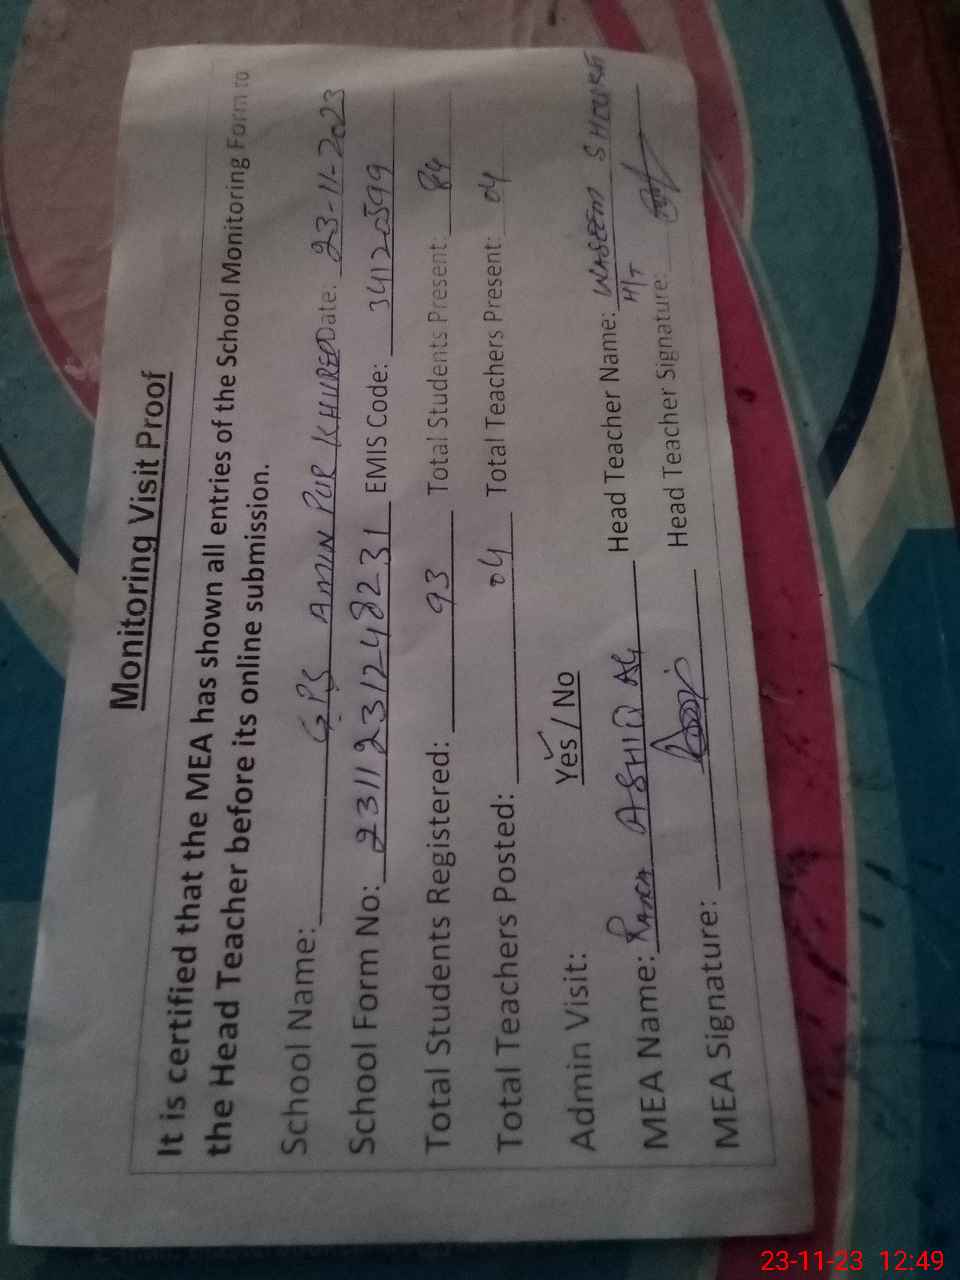 Monitoring Visit Proof
It is certified that the MEA has shown all entries of the School Monitoring Form to
the Head Teacher before its online submission.
School Name: G.P.S AMIN PUR KHURED Date: 23-11-2023
School Form No: 2311231248231 EMIS Code: 34120599
Total Students Registered: 93 Total Students Present: 84
Total Teachers Posted: 04 Total Teachers Present: 04
Admin Visit: Yes / No
MEA Name: RANA ASHIQ Head Teacher Name: WASEEM
H/T
MEA Signature: Head Teacher Signature:
23-11-23 12:49